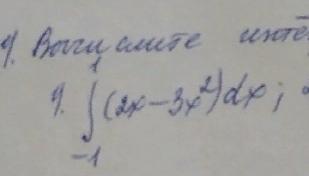 9. Вычислите инте
9. ∫₋₁¹ (2x – 3x²)dx;